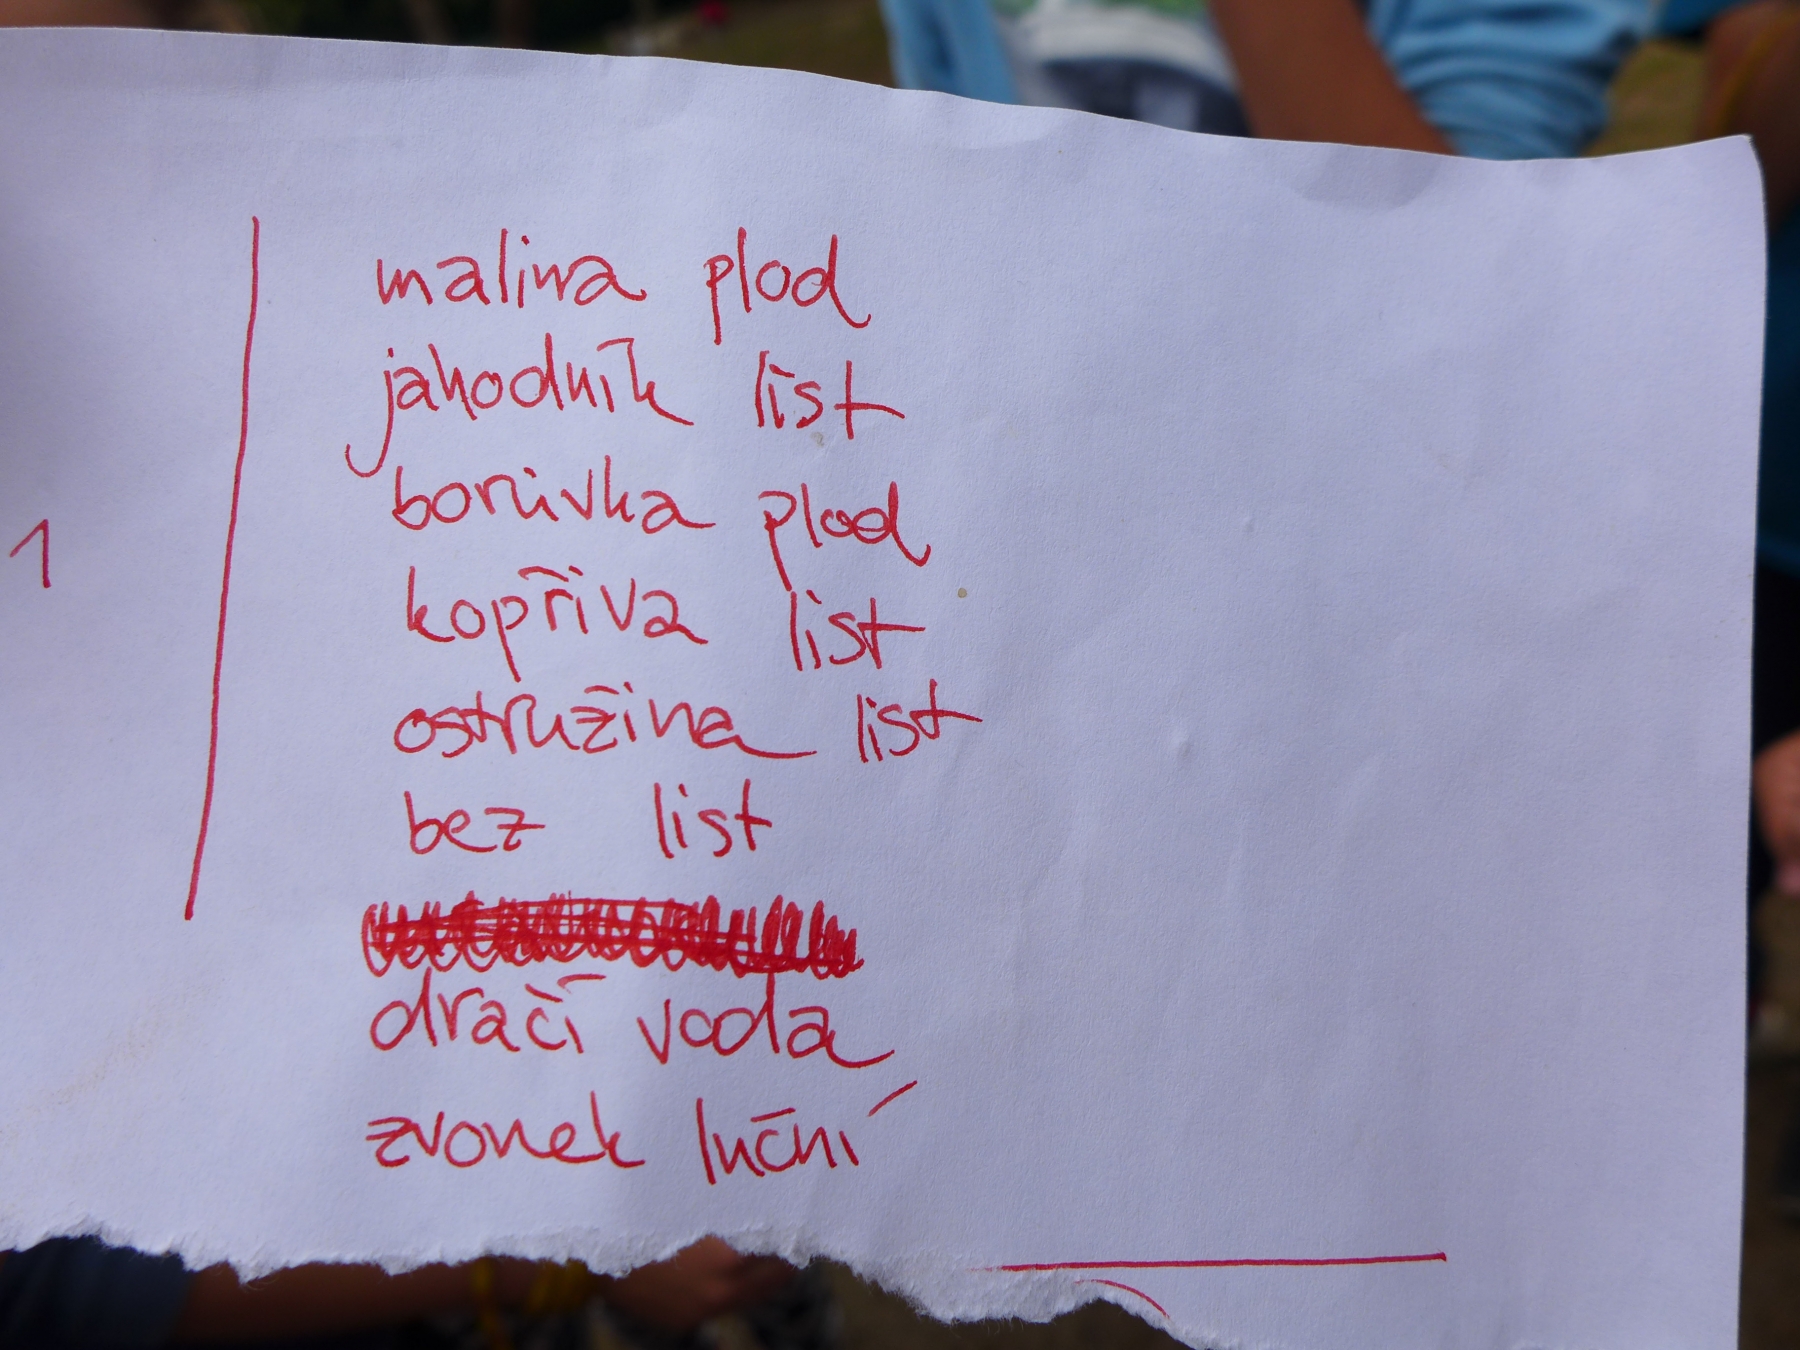 malina plod
jahodník list
borůvka plod
1
kopřiva list
ostružina list
bez list
dračí voda
zvonek luční